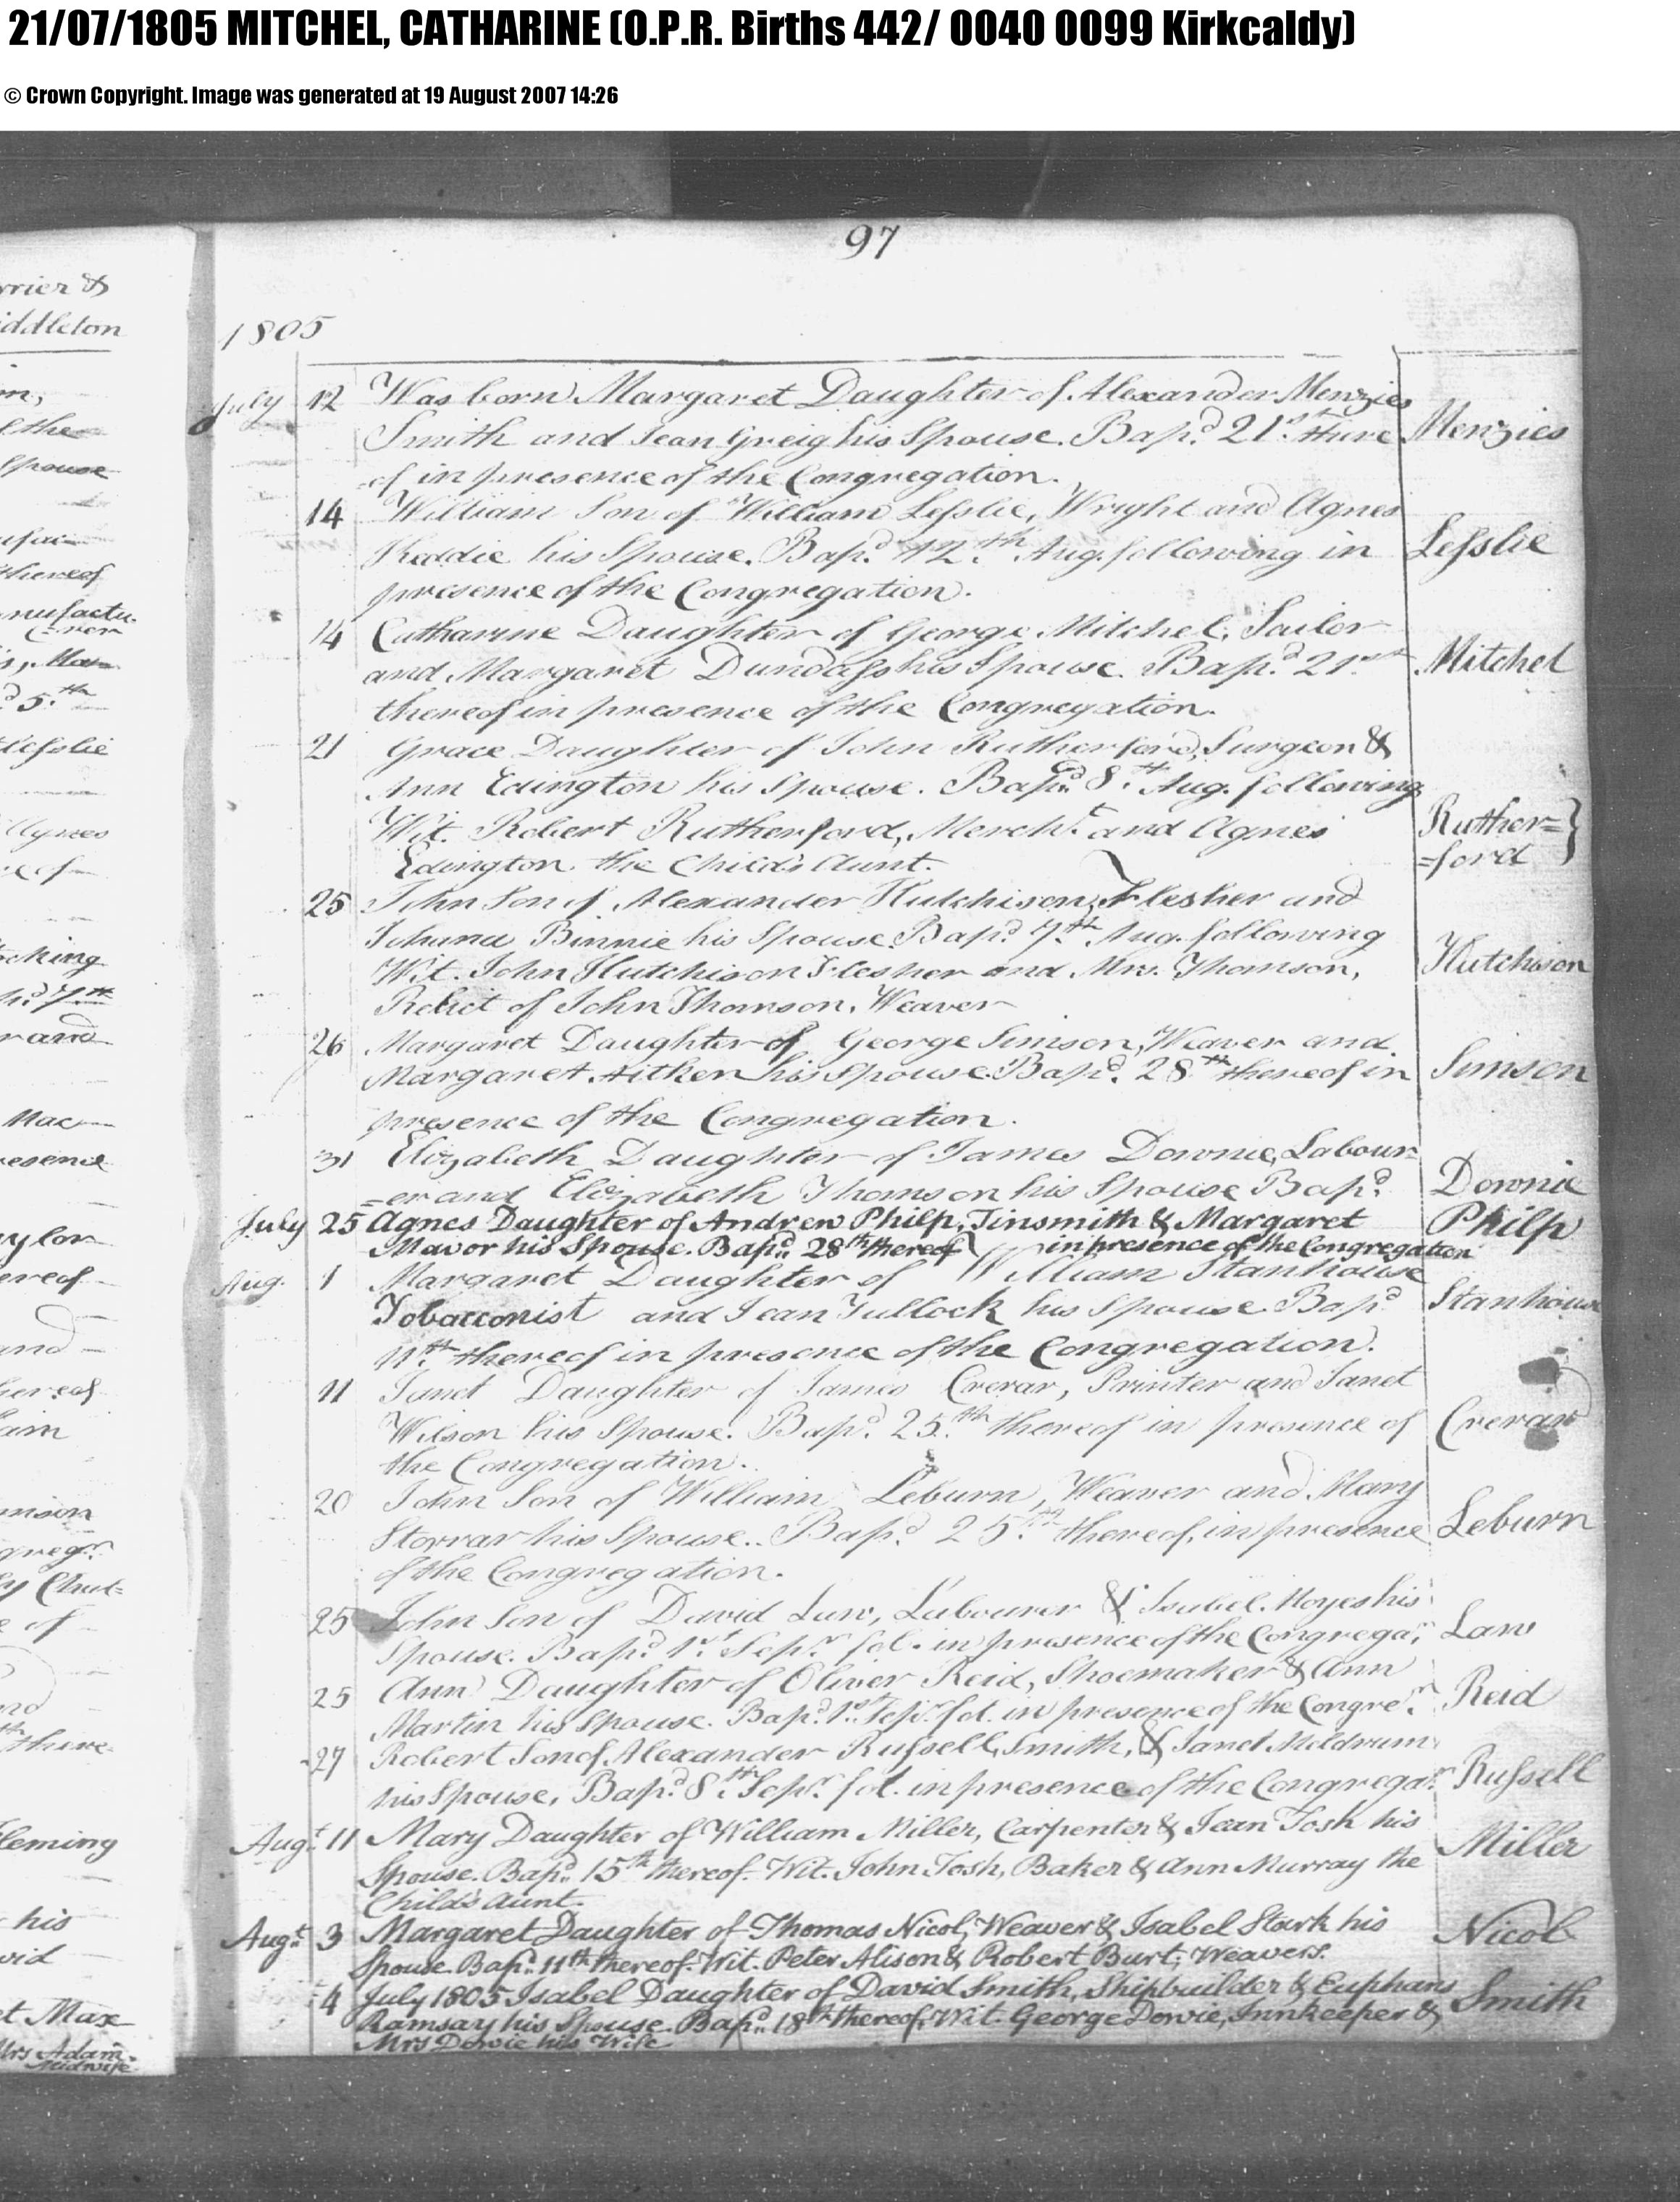 21/07/1805 MITCHEL, CATHARINE (O.P.R. Births 442/ 0040 0099 Kirkcaldy)
© Crown Copyright. Image was generated at 19 August 2007 14:26
97
1805
July 12 Was born Margaret Daughter of Alexander Menzies
Smith and Jean Greig his Spouse. Bap.d 21st. there Menzies
of in presence of the Congregation.
14 William Son of William Lesslie, Wright and Agnes
Keddie his Spouse. Bap.d 12.th Aug. following in Lesslie
presence of the Congregation.
14 Catharine Daughter of George Mitchel, Sailor
and Margaret Dundass his Spouse. Bap.d 21st Mitchel
thereof in presence of the Congregation.
21 Grace Daughter of John Rutherford, Surgeon &
Ann Edington his Spouse. Bap.d 8.th Aug. following
Wit. Robert Rutherford, Merch.t and Agnes Ruther=
Edington the Child's Aunt. =ford
25 John Son of Alexander Hutchison, Flesher and
Johana Binnie his Spouse Bap.d 7.th Aug. following
Wit. John Hutchison Flesher and Mrs. Thomson, Hutchison
Relict of John Thomson, Weaver
26 Margaret Daughter of George Simson, Weaver and
Margaret Aitken his Spouse. Bap.d 28th thereof in Simson
presence of the Congregation.
31 Elizabeth Daughter of James Downie, Labour=
=er and Elizabeth Thomson his Spouse Bap.d Downie
July 25 Agnes Daughter of Andrew Philp, Tinsmith & Margaret Philp
Mavor his Spouse. Bap.d 28th thereof in presence of the Congregation
Aug. 1 Margaret Daughter of William Stanhouse
Tobacconist and Jean Tullock his Spouse Bap.d Stanhouse
11.th thereof in presence of the Congregation.
11 Janet Daughter of James Crerar, Printer and Janet
Wilson his Spouse. Bap.d 25.th thereof in presence of Crerar
the Congregation.
20 John Son of William Leburn, Weaver and Mary
Storrar his Spouse. Bap.d 25.th thereof, in presence Leburn
of the Congregation.
25 John Son of David Law, Labourer & Isabel Moyes his
Spouse. Bap.d 1.st Sep.r fol. in presence of the Congrega.n Law
25 Ann Daughter of Oliver Reid, Shoemaker & Ann
Martin his Spouse. Bap.d 1.st Sep.r fol. in presence of the Congre.n Reid
27 Robert Son of Alexander Russell, Smith, & Janet Meldrum
his Spouse, Bap.d 8.th Sep.r fol. in presence of the Congrega.n Russell
Aug.t 11 Mary Daughter of William Miller, Carpenter & Jean Tosh his
Spouse. Bap.d 15th thereof. Wit. John Tosh, Baker & Ann Murray the Miller
Child's Aunt.
Aug.t 3 Margaret Daughter of Thomas Nicol, Weaver & Isabel Stark his Nicol
Spouse. Bap.d 11th thereof. Wit. Peter Alison & Robert Burt, Weavers.
4 July 1805 Isabel Daughter of David Smith, Shipbuilder & Euphans Smith
Ramsay his Spouse. Bap.d 18th thereof, Wit. George Dowie, Innkeeper &
Mrs Dowie his Wife